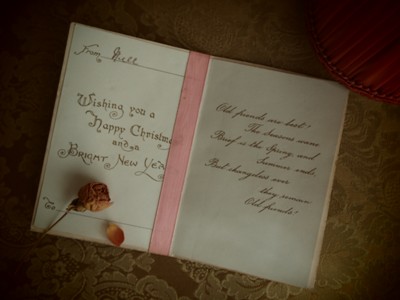 From Nell
Wishing you a
Happy Christmas
and a
Bright New Year
To
Old friends are best!
The Seasons wane
Brief is the Spring and
Summer ends
But changeless ever
they remain
Old friends!